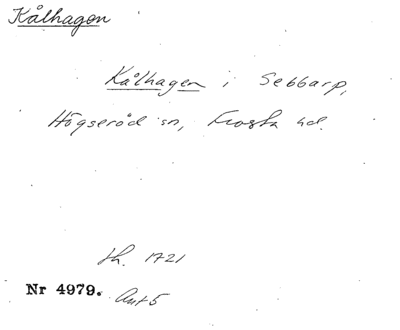 Kålhagen
Kålhagen i Sebbarp,
Högseröd sn, Frosta hd.
th. 1721
Nr 4979. Ant 5